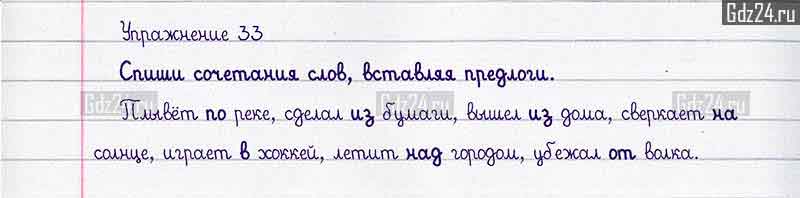 Gdz24.ru
Упражнение 33
Спиши сочетания слов, вставляя предлоги.
Gdz24.ru Gdz24.ru Gdz24.ru
Плывёт по реке, сделал из бумаги, вышел из дома, сверкает на
солнце, играет в хоккей, летит над городом, убежал от волка.